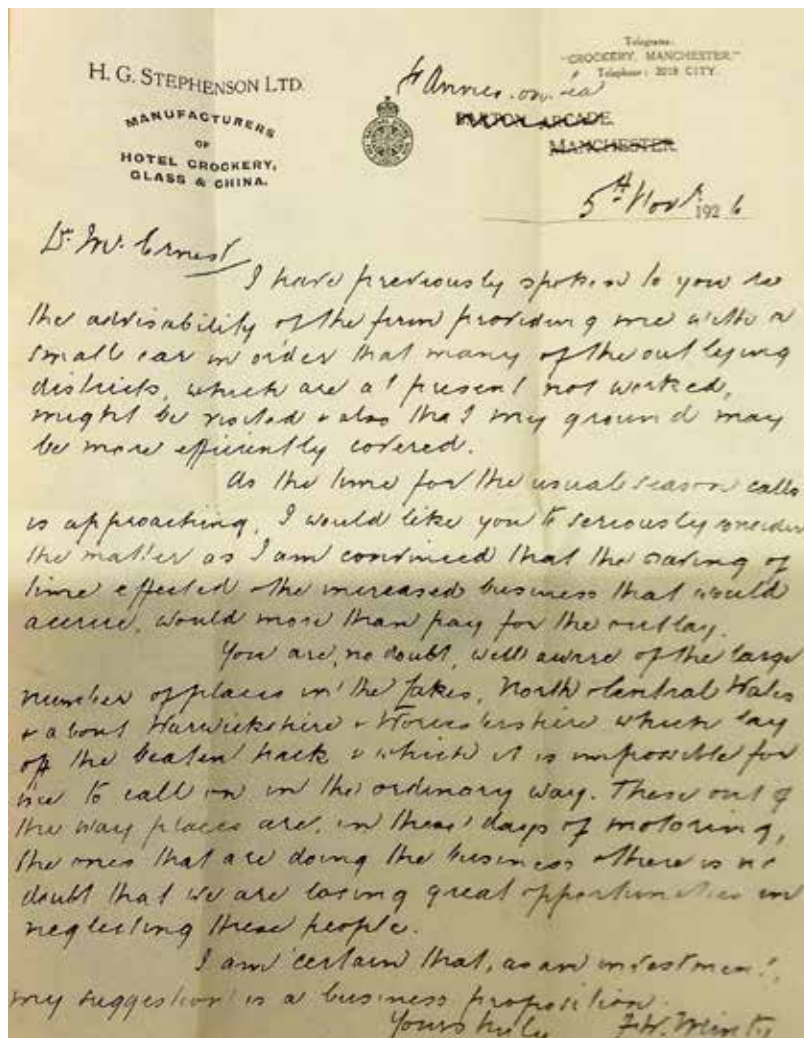 Telegrams:
"CROCKERY, MANCHESTER."
Telephone: 2019 CITY.
H. G. STEPHENSON LTD.
MANUFACTURERS
OF
HOTEL CROCKERY,
GLASS & CHINA.
St Annes-on-Sea
BARTON ARCADE
MANCHESTER
5th Novr. 1926
Dr. Mr. Ernest
I have previously spoken to you re
the advisability of the firm providing me with a
small car in order that many of the outlying
districts, which are at present not worked,
might be visited & also that my ground may
be more efficiently covered.
As the time for the usual season calls
is approaching, I would like you to seriously consider
the matter as I am convinced that the saving of
time effected & the increased business that would
accrue, would more than pay for the outlay.
You are, no doubt, well aware of the large
number of places in the Lakes, North & Central Wales
& about Warwickshire & Worcestershire which lay
off the beaten track & which it is impossible for
me to call on in the ordinary way. These out of
the way places are, in these days of motoring,
the ones that are doing the business & there is no
doubt that we are losing great opportunities in
neglecting these people.
I am certain that, as an investment,
my suggestion is a business proposition.
Yours truly F.W. Minty